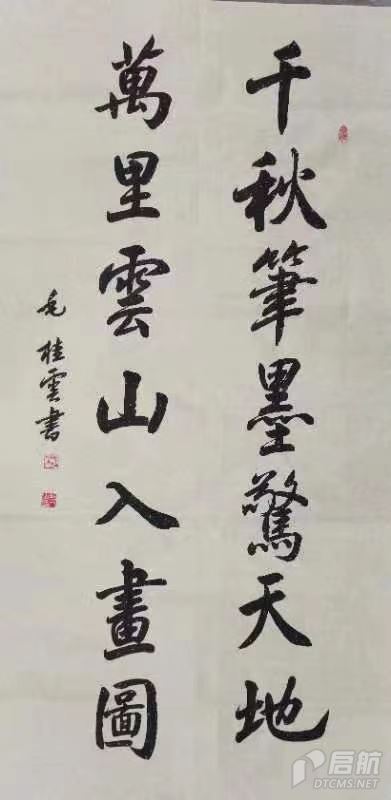 千秋筆墨驚天地
萬里雲山入畫圖
毛桂雲书
启航
DTCMS.NET